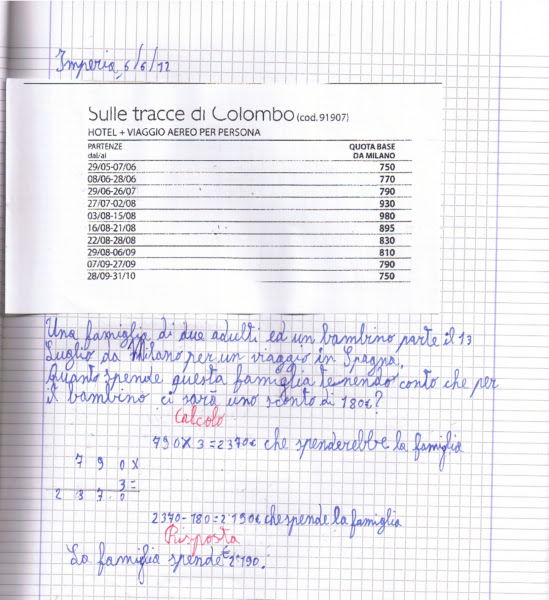 Imperia, 6/6/12
Sulle tracce di Colombo (cod. 91907)
HOTEL + VIAGGIO AEREO PER PERSONA
PARTENZE QUOTA BASE
dal/al DA MILANO
29/05-07/06 750
08/06-28/06 770
29/06-26/07 790
27/07-02/08 930
03/08-15/08 980
16/08-21/08 895
22/08-28/08 830
29/08-06/09 810
07/09-27/09 790
28/09-31/10 750
Una famiglia di due adulti ed un bambino parte il 13
Luglio da Milano per un viaggio in Spagna.
Quanto spende questa famiglia tenendo conto che per
il bambino ci sarà uno sconto di 180€?
Calcolo
790 x 3 = 2370€ che spenderebbe la famiglia
7 9 0 x
3 =
2 3 7 0
2370 - 180 = 2190€ che spende la famiglia
Risposta
La famiglia spende € 2.190.